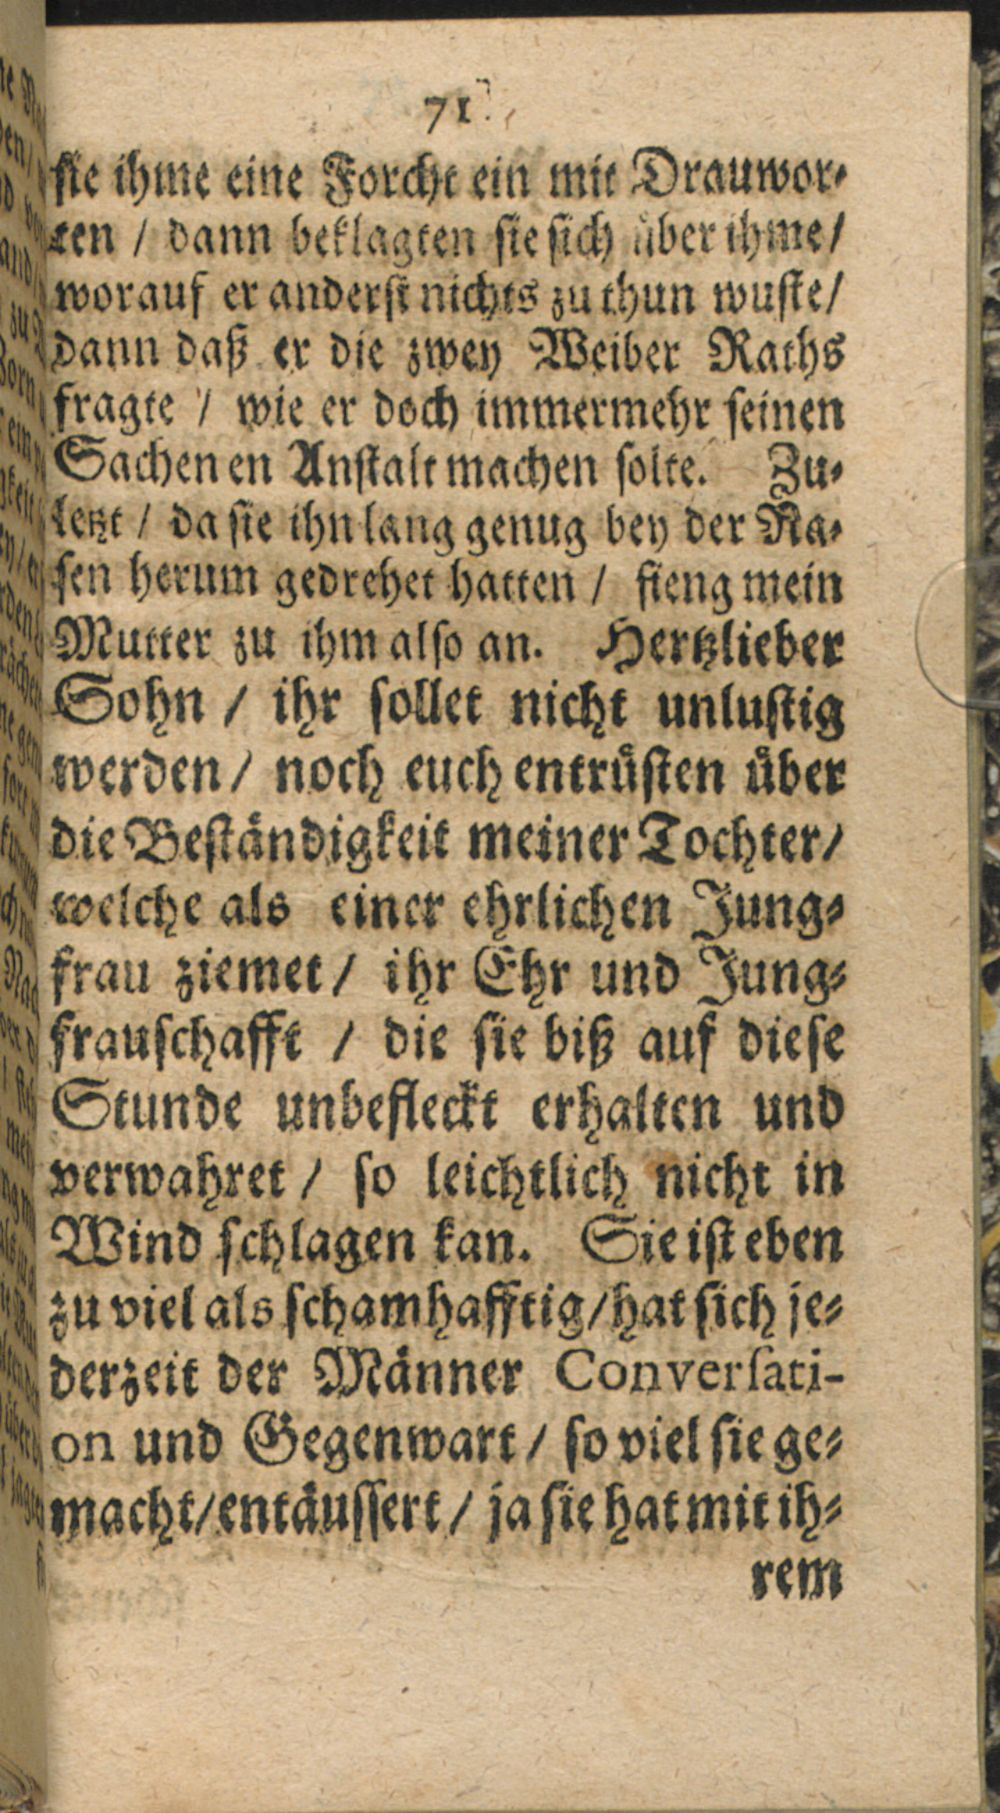 71.
sie ihme eine Forcht ein mit Drauwor-
ten / dann beklagten sie sich über ihme /
worauf er anderst nichts zu thun wuste /
dann daß er die zwey Weiber Raths
fragte / wie er doch immermehr seinen
Sachen en Anstalt machen solte. Zu-
letzt / da sie ihn lang genug bey der Na-
sen herum gedrehet hatten / fieng mein
Mutter zu ihm also an. Hertzlieber
Sohn / ihr sollet nicht unlustig
werden / noch euch entrüsten über
die Beständigkeit meiner Tochter /
welche als einer ehrlichen Jung-
frau ziemet / ihr Ehr und Jung-
frauschafft / die sie biß auf diese
Stunde unbefleckt erhalten und
verwahret / so leichtlich nicht in
Wind schlagen kan. Sie ist eben
zu viel als schamhafftig / hat sich je-
derzeit der Männer Conversati-
on und Gegenwart / so viel sie ge-
macht / entäussert / ja sie hat mit ih-
rem